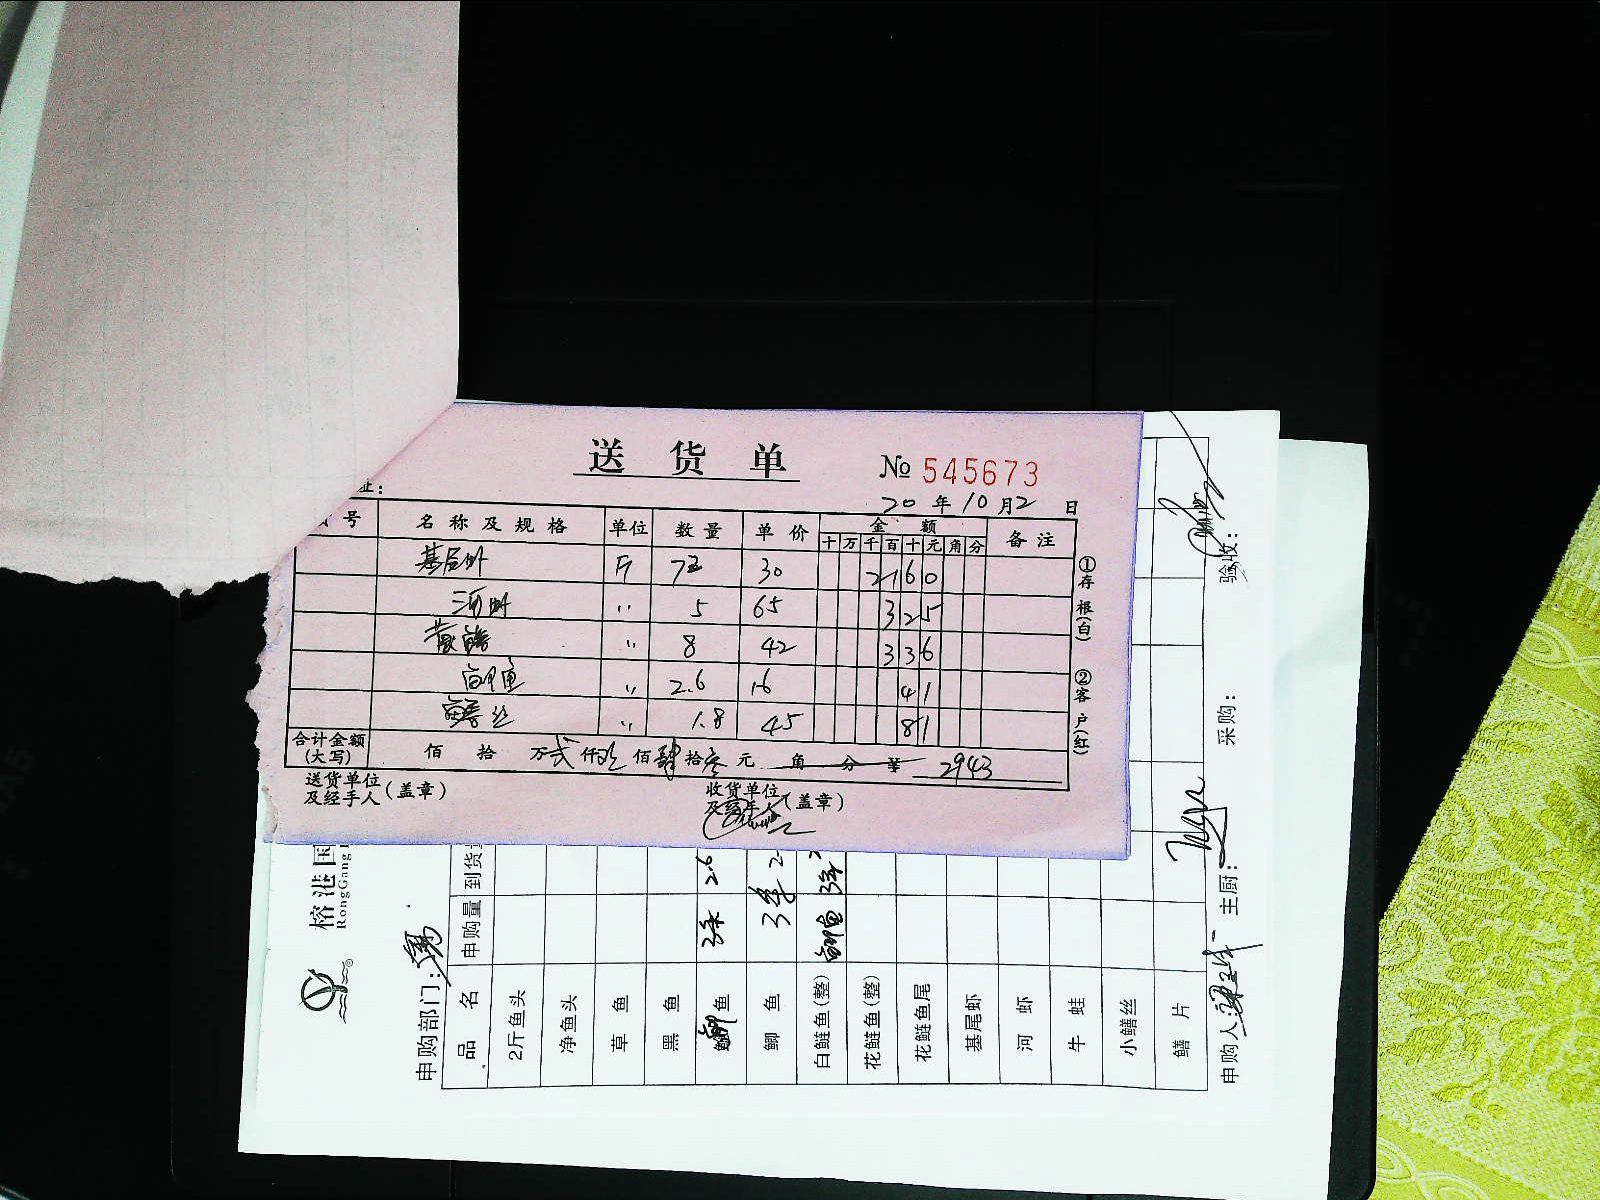 送货单
№ 545673
20年10月2日
址：
号 名称及规格 单位 数量 单价 金额 备注
十 万 千 百 十 元 角 分
基尾虾 斤 72 30 2160
河虾 〃 5 65 325
〃 8 42 336
鲫鱼 〃 2.6 16 41
鳝丝 〃 1.8 45 81
合计金额(大写) 佰 拾 万 贰 仟 玖 佰 肆 拾 叁 元 角 分 ¥ 2943
送货单位及经手人(盖章)
收货单位及经手人(盖章)
①存根(白)
②客户(红)
榕港国
RongGang
申购部门：
品名 申购量 到货
2斤鱼头
净鱼头
草鱼
黑鱼
鱼 3条 2.6
鲫鱼 3条 2
白鲢鱼(整) 3条
花鲢鱼(整)
花鲢鱼尾
基尾虾
河虾
牛蛙
小鳝丝
鳝片
申购人：
主厨：
采购：
验收：